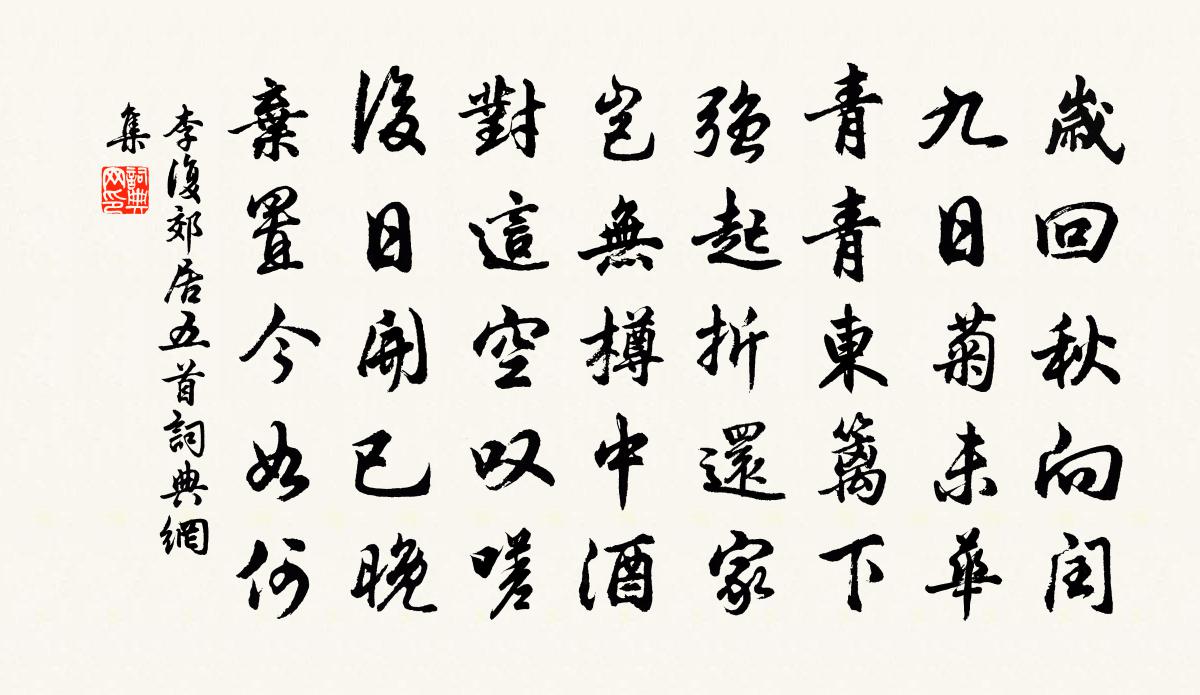 歲回秋向閏
九日菊未華
青青東籬下
強起折還家
豈無樽中酒
對這空叹嗟
後日開已晚
棄置今如何
李復郊居五首詞典網
集
詞典網印